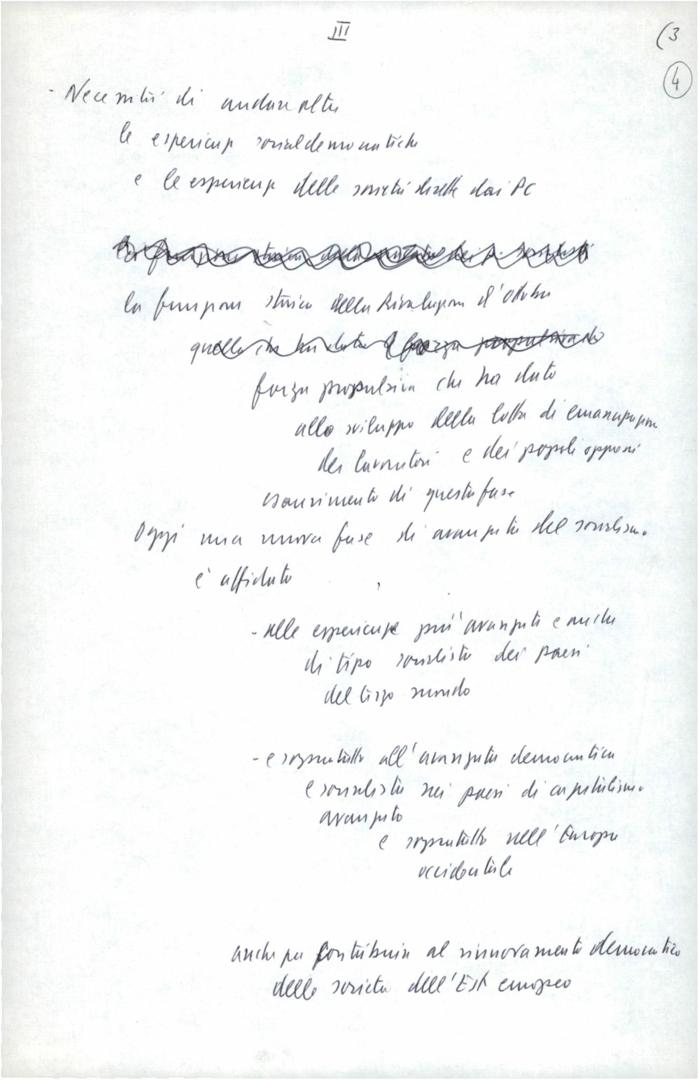 III
(3
4
- Necessità di andare oltre
le esperienze socialdemocratiche
e le esperienze delle società dirette dai PC
la funzione storica della Rivoluzione d'Ottobre
quella che ha dato forza propulsiva
forza propulsiva che ha dato
allo sviluppo della lotta di emancipazione
dei lavoratori e dei popoli oppressi
esaurimento di questa fase
Oggi una nuova fase di avanzata del socialismo
è affidata
- alle esperienze più avanzate e anche
di tipo socialista dei paesi
del terzo mondo
- e soprattutto all'avanzata democratica
e socialista nei paesi di capitalismo
avanzato
e soprattutto nell'Europa
occidentale
anche per contribuire al rinnovamento democratico
delle società dell'Est europeo